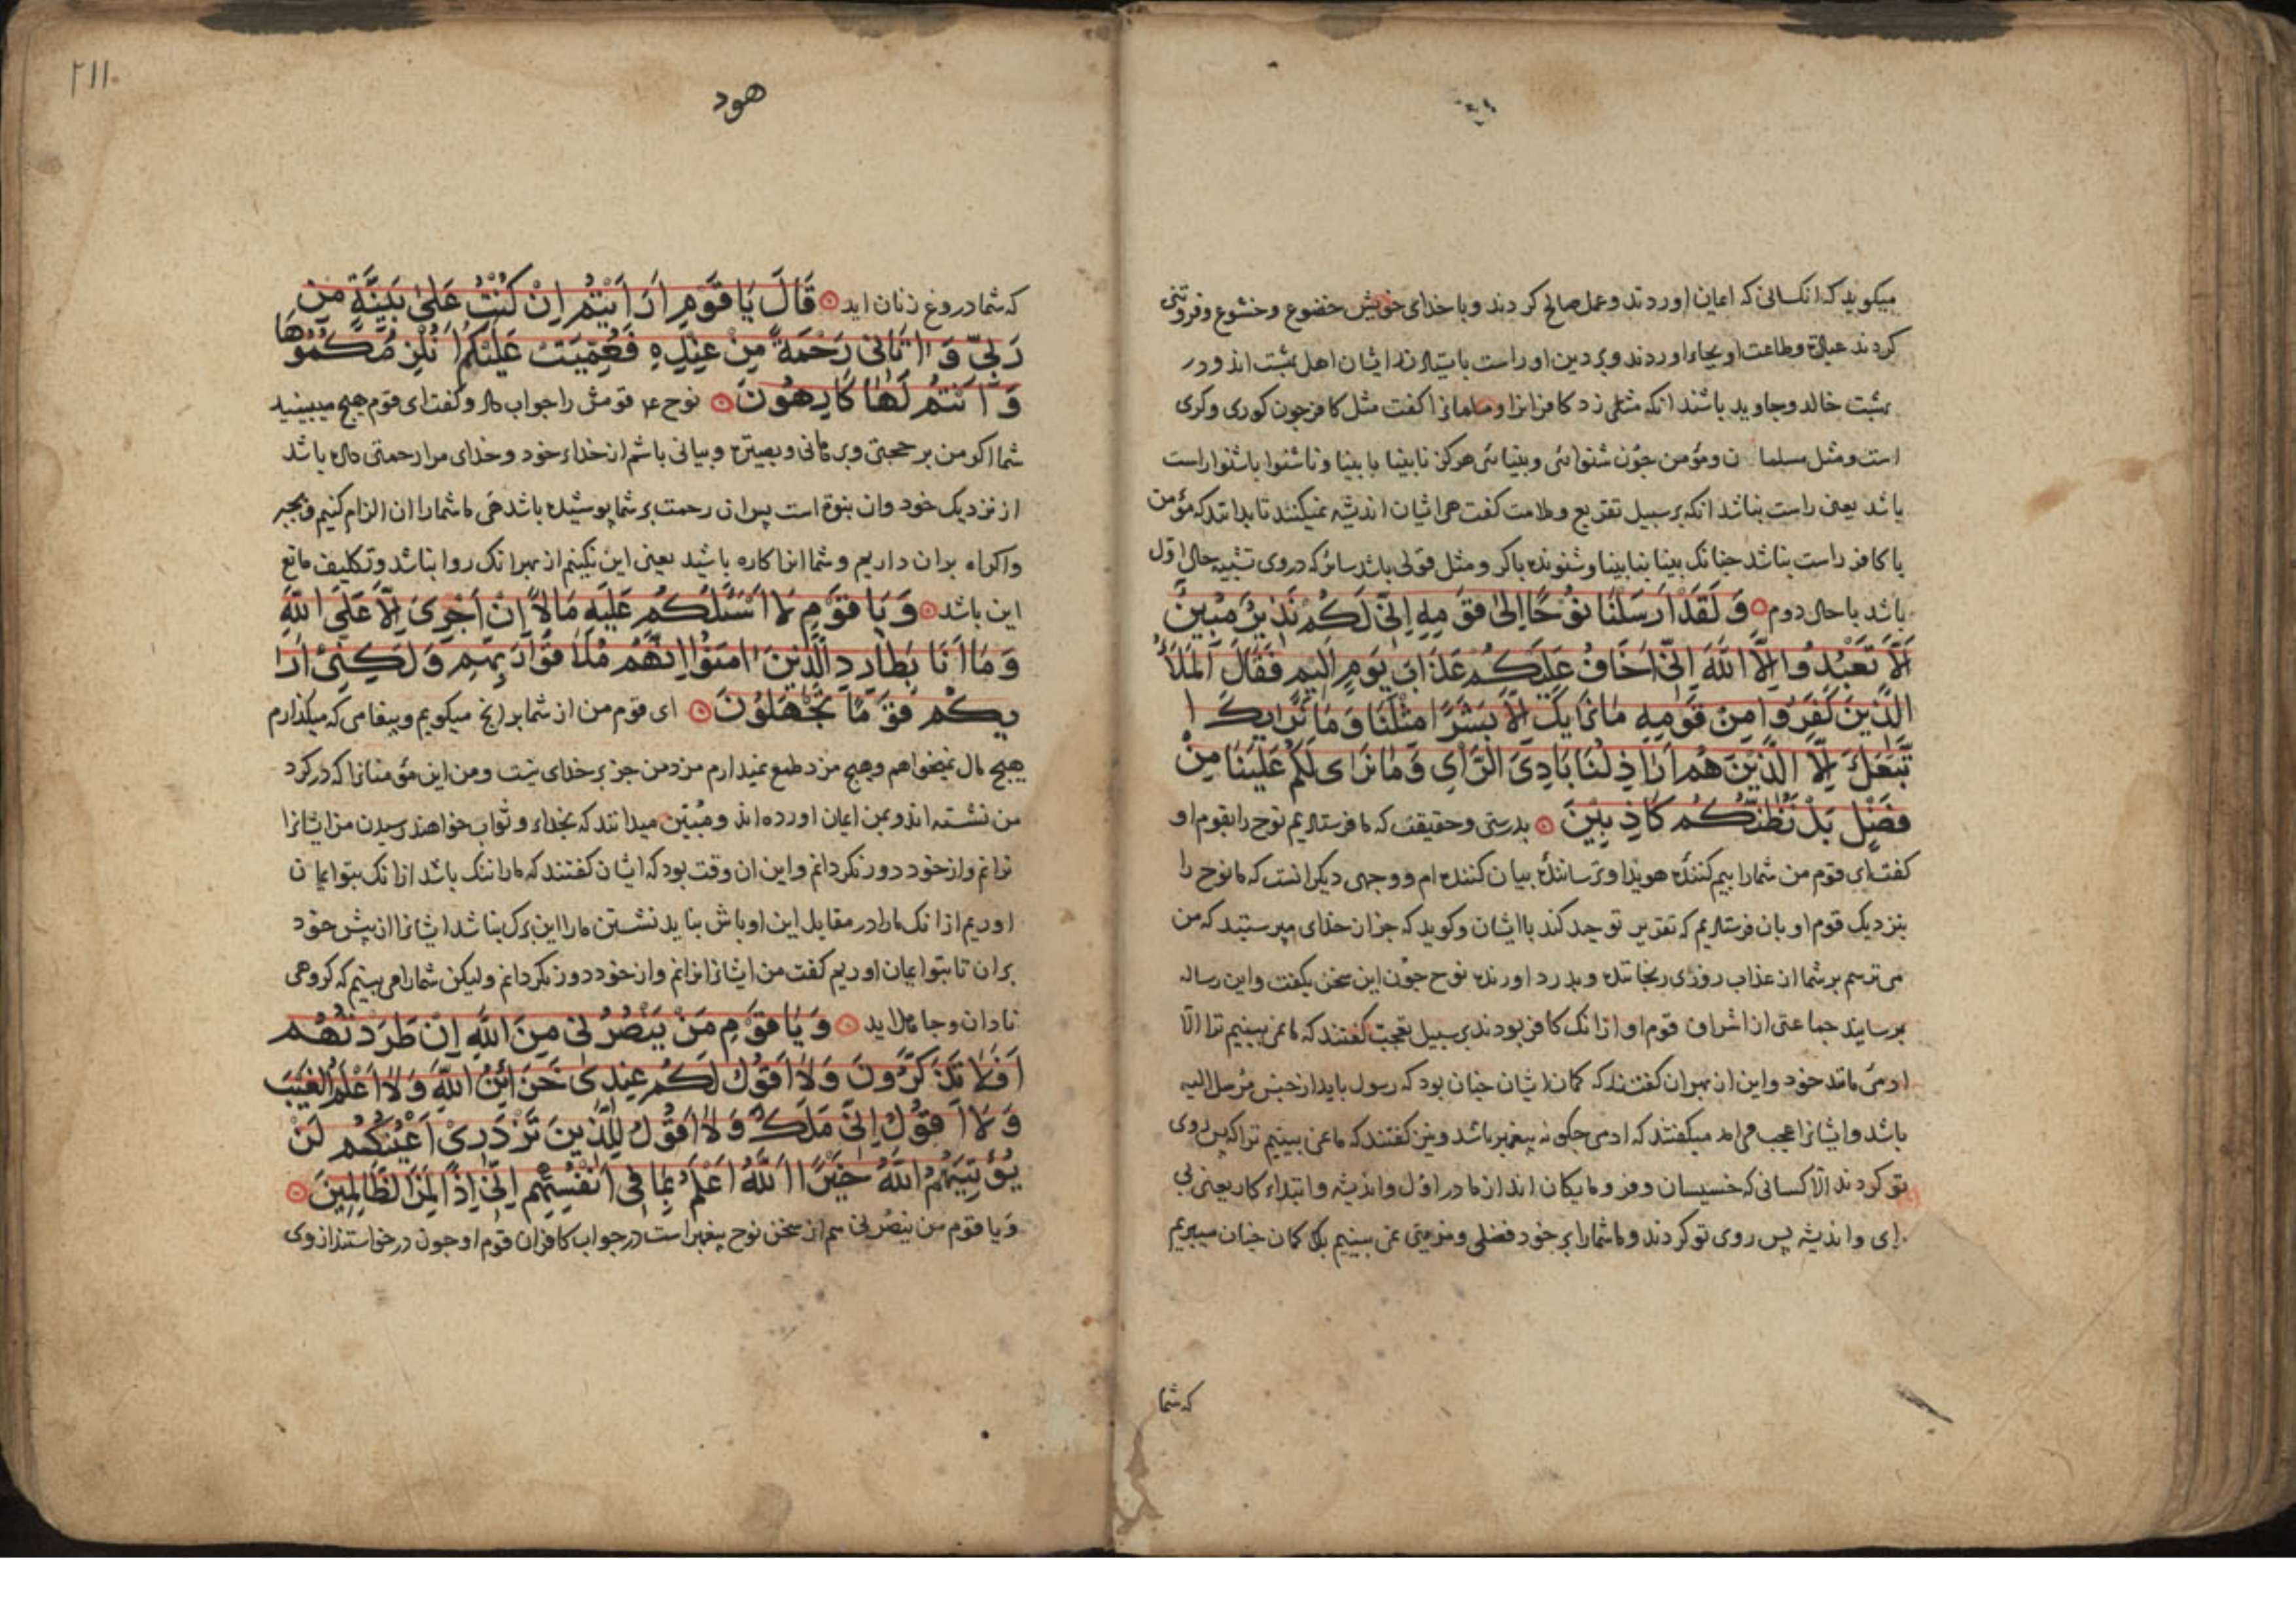 میکوید که انکسانی که ایمان اوردند و عمل صالح کردند و با خدای خویش خضوع و خشوع و فروتنی
کردند عبادة و طاعت او بجای اوردند و بر دین او راست بایستادند ایشان اهل بهشت اند و در
بهشت خالد و جاوید باشند انکه مثلی زد کافرانرا و مسلمانرا کفت مثل کافر چون کوری و کری
است و مثل مسلمان و مؤمن چون شنوائی و بینائی هرکز نابینا با بینا و ناشنوا با شنوا راست
باشد یعنی راست نباشد انکه بر سبیل تقریع و ملامت کفت هی ایشان اندیشه نمیکنند تا بدانند که مؤمن
با کافر راست نباشد چنانک بینا بنابینا و شنونده با کر و مثل قولی باشد سائر که در وی تشبیه حال اول
باشد با حال دوم وَلَقَدْ اَرْسَلْنَا نُوْحًا اِلىٰ قَوْمِهِ اِنِّى لَكُمْ نَذِيْرٌ مُبِيْنٌ
اَلَّا تَعْبُدُوا اِلَّا اللّٰهَ اِنِّى اَخَافُ عَلَيْكُمْ عَذَابَ يَوْمٍ اَلِيْمٍ فَقَالَ الْمَلَاُ
الَّذِيْنَ كَفَرُوا مِنْ قَوْمِهِ مَا نَرَايكَ اِلَّا بَشَرًا مِثْلَنَا وَمَا نَرَايكَ ا
تَّبَعَكَ اِلَّا الَّذِيْنَ هُمْ اَرَاذِلُنَا بَادِىَ الرَّاىِ وَمَا نَرَاى لَكُمْ عَلَيْنَا مِنْ
فَضْلٍ بَلْ نَظُنُّكُمْ كَاذِبِيْنَ بدرستی و حقیقت که ما فرستادیم نوح را بقوم او
کفت ای قوم من شما را بیم کننده هویدا و ترساننده بیان کننده ام و وجهی دیکر انست که ما نوح را
بنزدیک قوم او بان فرستادیم که تقریر توحید کند با ایشان و کوید که جز ان خدای مپرستید که من
می ترسم بر شما از عذاب روزی رنجاننده و بدرد اورنده نوح چون این سخن بکفت و این رساله
برسانید جماعتی از اشراف قوم او از انک کافر بودند بر سبیل تعجب کفتند که ما نمی بینیم ترا الا
ادمی مانند خود و این از بهر ان کفتند که کمان ایشان چنان بود که رسول باید از جنس مرسل الیه
باشد و ایشانرا عجب می امد میکفتند که ادمی چکونه پیغمبر باشد و نیز کفتند که ما نمی بینیم ترا که پس روی
تو کردند الا کسانی که خسیسان و فرومایکان اند از ما در اول و اندیشه و ابتداء کار یعنی بی
رای و اندیشه پس روی تو کردند و ما شما را بر خود فضلی و مزیتی نمی بینیم بلک کمان چنان میبریم
که شما
٢١١
هود
که شما دروغ زنان اید قَالَ يَا قَوْمِ اَرَاَيْتُمْ اِنْ كُنْتُ عَلىٰ بَيِّنَةٍ مِنْ
رَبِّى وَاٰتَانِى رَحْمَةً مِنْ عِنْدِهِ فَعُمِّيَتْ عَلَيْكُمْ اَنُلْزِمُكُمُوْهَا
وَاَنْتُمْ لَهَا كَارِهُوْنَ نوح ع قومش را جواب داد و کفت ای قوم هیچ میبینید
شما اکر من بر حجتی و برهانی و بصیرة و بیانی باشم از خداء خود و خدای مرا رحمتی داده باشد
از نزدیک خود و ان نبوة است پس ان رحمت بر شما پوشیده باشد هی ما شما را ان الزام کنیم و بجبر
و اکراه بران داریم و شما انرا کاره باشید یعنی این نکنیم از بهر انک روا نباشد و تکلیف مانع
این باشد وَيَا قَوْمِ لَا اَسْئَلُكُمْ عَلَيْهِ مَالًا اِنْ اَجْرِىَ اِلَّا عَلَى اللّٰهِ
وَمَا اَنَا بِطَارِدِ الَّذِيْنَ اٰمَنُوْا اِنَّهُمْ مُلَاقُوْا رَبِّهِمْ وَلٰكِنِّىْ اَرَا
يكُمْ قَوْمًا تَجْهَلُوْنَ ای قوم من از شما بر انچ میکویم و پیغامی که میکذارم
هیچ مال نمیخواهم و هیچ مزد طمع نمیدارم مزد من جز بر خدای نیست و من این مؤمنانرا که در کرد
من نشسته اند و بمن ایمان اورده اند و مبین میدانند که بخداء و ثواب خواهند رسیدن من ایشانرا
نرانم و از خود دور نکردانم و این ان وقت بود که ایشان کفتند که ما را ننک باشد از انک بتو ایمان
اوریم از انک ما را در مقابل این اوباش بباید نشستن ما را این برک نباشد ایشانرا از پیش خود
بران تا بتو ایمان اوریم کفت من ایشانرا نرانم و از خود دور نکردانم ولیکن شما را می بینم که کروهی
نادان و جاهلاید وَيَا قَوْمِ مَنْ يَنْصُرُنِى مِنَ اللّٰهِ اِنْ طَرَدْتُهُمْ
اَفَلَا تَذَكَّرُوْنَ وَلَا اَقُوْلُ لَكُمْ عِنْدِى خَزَائِنُ اللّٰهِ وَلَا اَعْلَمُ الْغَيْبَ
وَلَا اَقُوْلُ اِنِّى مَلَكٌ وَلَا اَقُوْلُ لِلَّذِيْنَ تَزْدَرِىْ اَعْيُنُكُمْ لَنْ
يُؤْتِيَهُمُ اللّٰهُ خَيْرًا اَللّٰهُ اَعْلَمُ بِمَا فِى اَنْفُسِهِمْ اِنِّى اِذًا لَمِنَ الظَّالِمِيْنَ
وَیا قوم من ینصرنی هم از سخن نوح پیغمبر است در جواب کافران قوم او چون درخواستند از وی